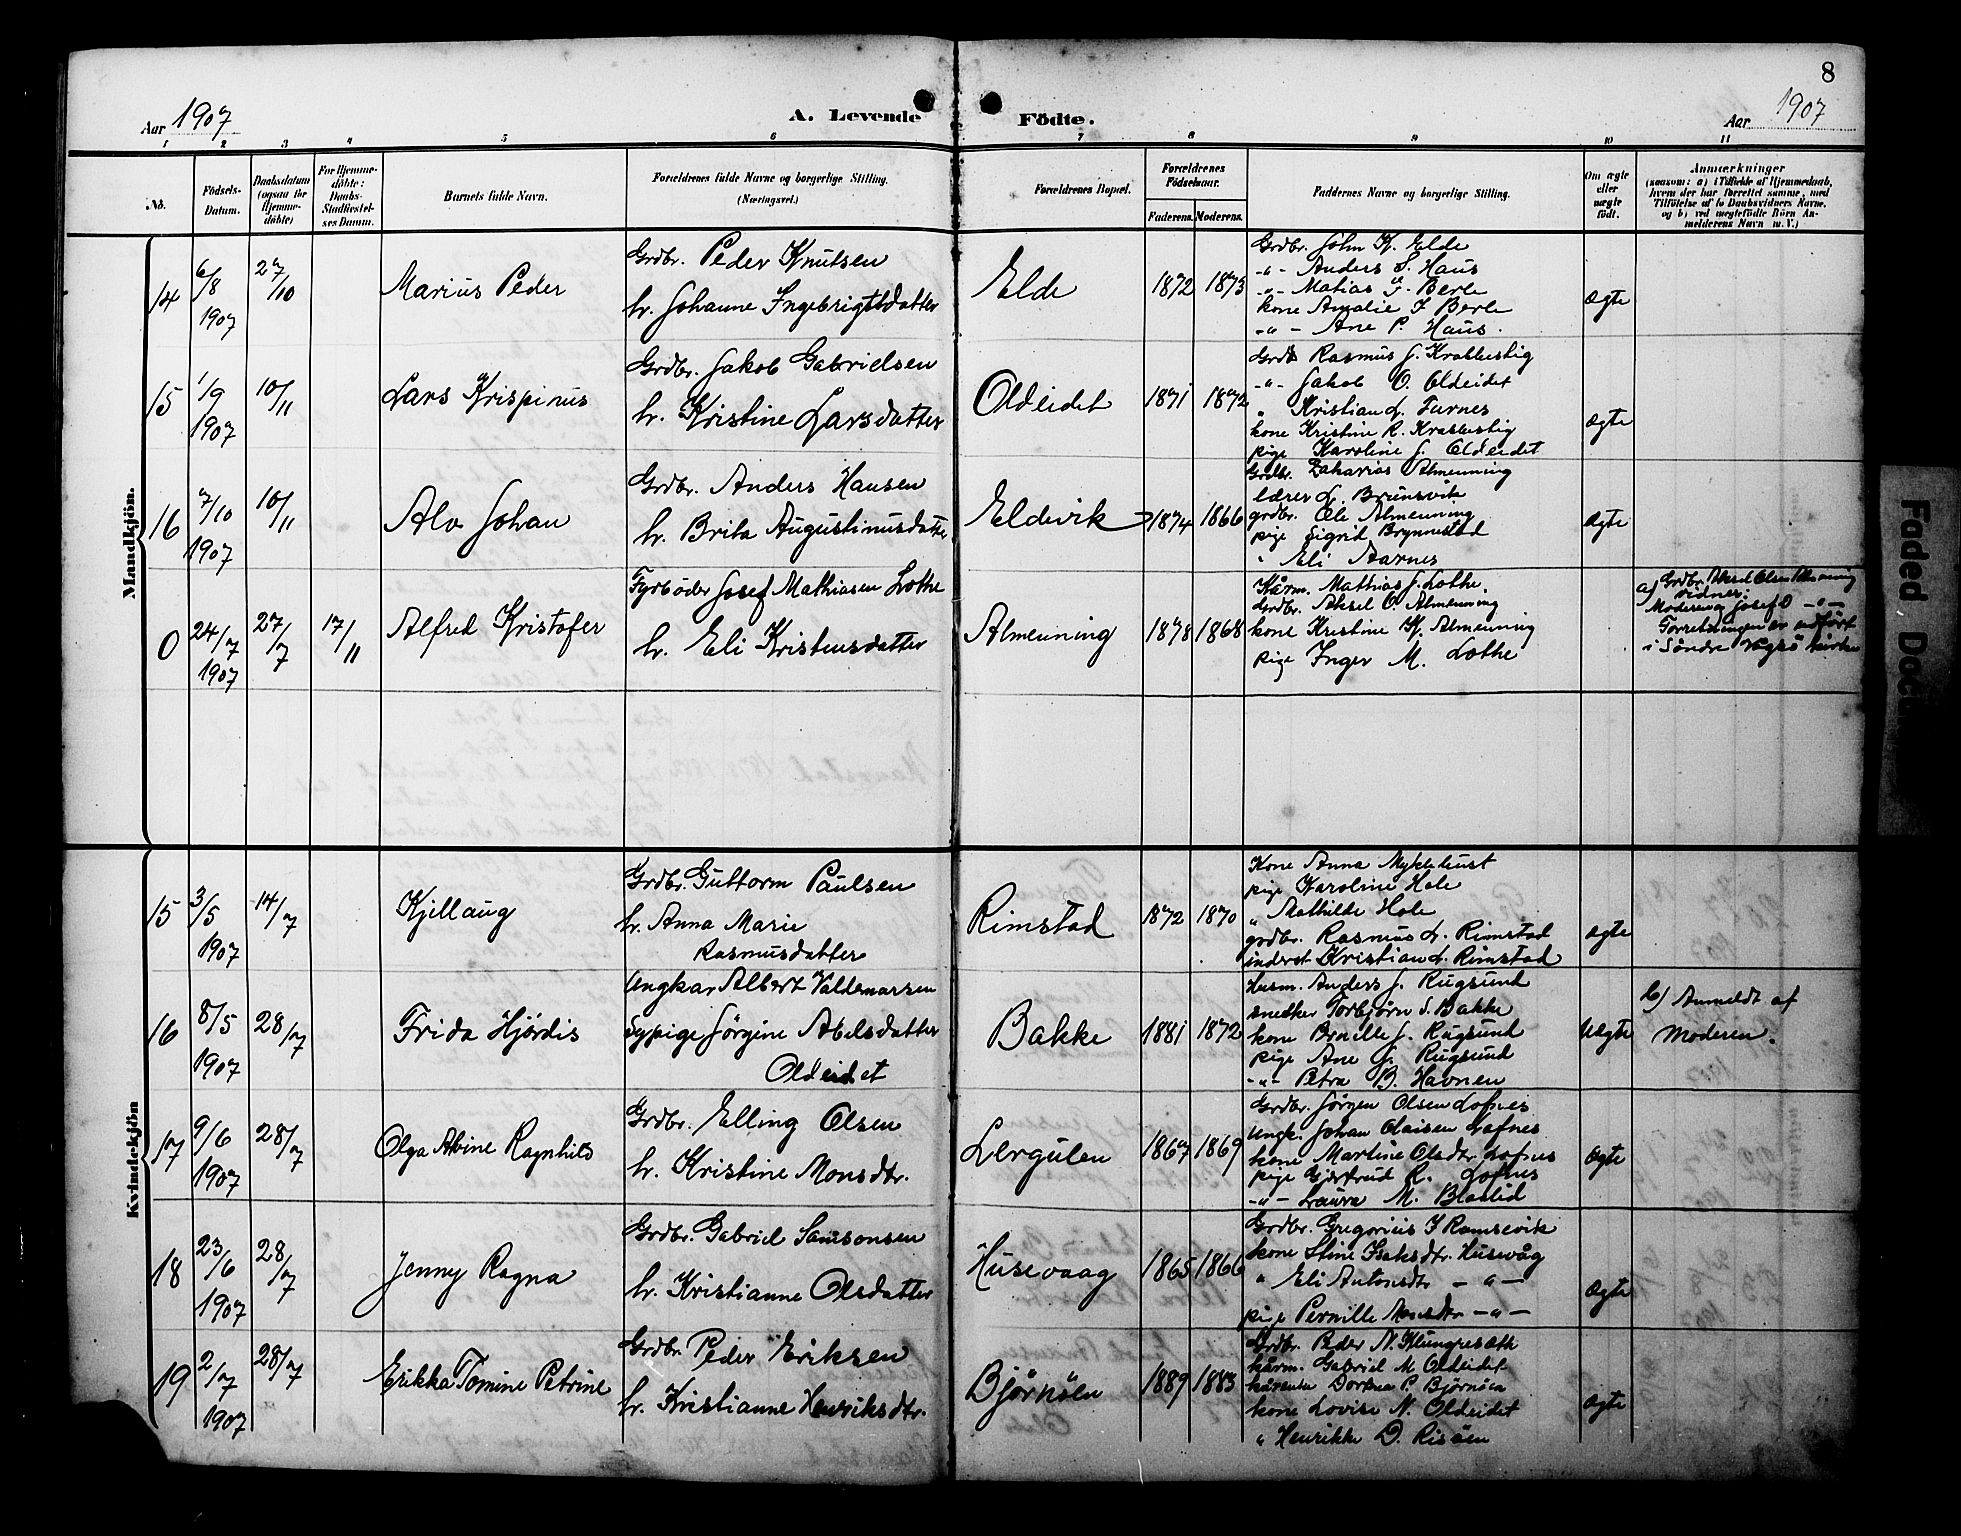 8
Aar 1907
A. Levende Födte.
Aar 1907
1 2 3 4 5 6 7 8 9 10 11
No.
Födsels-
Datum.
Daabsdatum
(ogsaa for
Hjemme-
döbte)
For Hjemme-
döbte:
Daabs-
Stadfæstel-
ses Datum.
Barnets fulde Navn.
Forældrenes fulde Navne og borgerlige Stilling.
(Næringsvei.)
Forældrenes Bopæl.
Forældrenes
Födselsaar.
Faderens. Moderens.
Faddernes Navne og borgerlige Stilling.
Om ægte
eller
uægte
födt.
Anmærkninger
(saasom: a) i Tilfælde af Hjemmedaab,
hvem der har forrettet samme, med
Tilföielse af to Daabsvidners Navne,
og b) ved uægtefödte Börn An-
melderens Navn m. V.)
Mandkjön.
14
6/8
1907
27/10
Marius Peder
Grdbr. Peder Knutsen
h. Johanne Ingebrigtsdatter
Elde
1872 1873
Grdbr. John K. Elde
-"- Anders S. Haus
-"- Matias J. Berle
kone Amalie J Berle
-"- Ane P. Haus.
ægte
15
1/9
1907
10/11
Lars Krispinus
Grdbr. Jakob Gabrielsen
h. Kristine Larsdatter
Oldeidet
1871 1872
Grdb Rasmus J. Krabbestig
-"- Jakob O. Oldeidet
" Kristian L. Furnes
kone Kristine R. Krabbestig
pige Karoline J. Oldeidet
ægte
16
7/10
1907
10/11
Alv Johan
Grdbr. Anders Hansen
h. Brita Augustinusdatter
Eldevik
1874 1866
Grdbr. Zakarias Almenning
lærer L. Brunsvik
grdbr. Ole Almenning
pige Sigrid Brynnestad
" Eli Aarnes
ægte
0
24/7
1907
27/7
17/11
Alfred Kristofer
Fyrbøder Josef Mathiasen Lothe
h. Eli Kristensdatter
Almenning
1878 1868
Kårm. Mathias J. Lothe.
Grdbr. Aksel O. Almenning
kone Kristine K. Almenning
pige Inger M. Lothe
a) Grdbr. Aksel Olsen Almening
vidner:
Moderen og Josef O -"-
Forretningen er udført
i Søndre Vågsø kirke
Kvindekjön
15
3/5
1907
14/7
Kjellaug
Grdbr. Guttorm Paulsen
h. Anna Marie
Rasmusdatter
Rimstad
1872 1870
Kone Anna Myklebust
pige Karoline Hole
" Mathilde Hole
grdbr. Rasmus L. Rimstad
inderst Kristian L. Rimstad
ægte
16
8/5
1907
28/7
Frida Hjördis
Ungkar Albert Valdemarsen
Sypige Jørgine Abelsdatter
Oldeidet
Bakke
1881 1872
Husm. Anders J. Rugsund
snedker Torbjørn S. Bakke
kone J. Rugsund
pige Ane J. Rugsund
-"- Petra B. Havnen
Uægte
b) Anmeldt af
Moderen.
17
9/6
1907
28/7
Olga Alvine Ragnhild
Grdbr. Elling Olsen
h. Kristine Monsdtr.
Lergulen
1867 1869
Grdbr. Jörgen Olsen Lofnes
Ungk. Johan Olaisen Lofnes
kone Martine Olsdtr. Lofnes
pige Gjertrud R. Lofnes
-"- Laura M. Blaalid
ægte
18
23/6
1907
28/7
Jenny Ragna
Grdbr. Gabriel Samsonsen
h. Kristianne Olsdatter
Husevaag
1865 1866
Grdbr. Gregorius J Ramsevik
kone Stine Isaksdtr. Husevåg
" Eli Antonsdtr -"-
pige Pernille Monsdtr -"-
ægte
19
2/7
1907
28/7
Erikka Tomine Petrine
Grdbr. Peder Eriksen
h. Kristianne Henriksdtr.
Bjørnöen
1889 1883
Grdbr. Peder N. Klungresæth
kårm. Gabriel M. Oldeidet
kårenke Dorthea P. Bjørnöen
kone Lovise N. Oldeidet
" Henrikke D. Risöen
ægte
Faded Doc